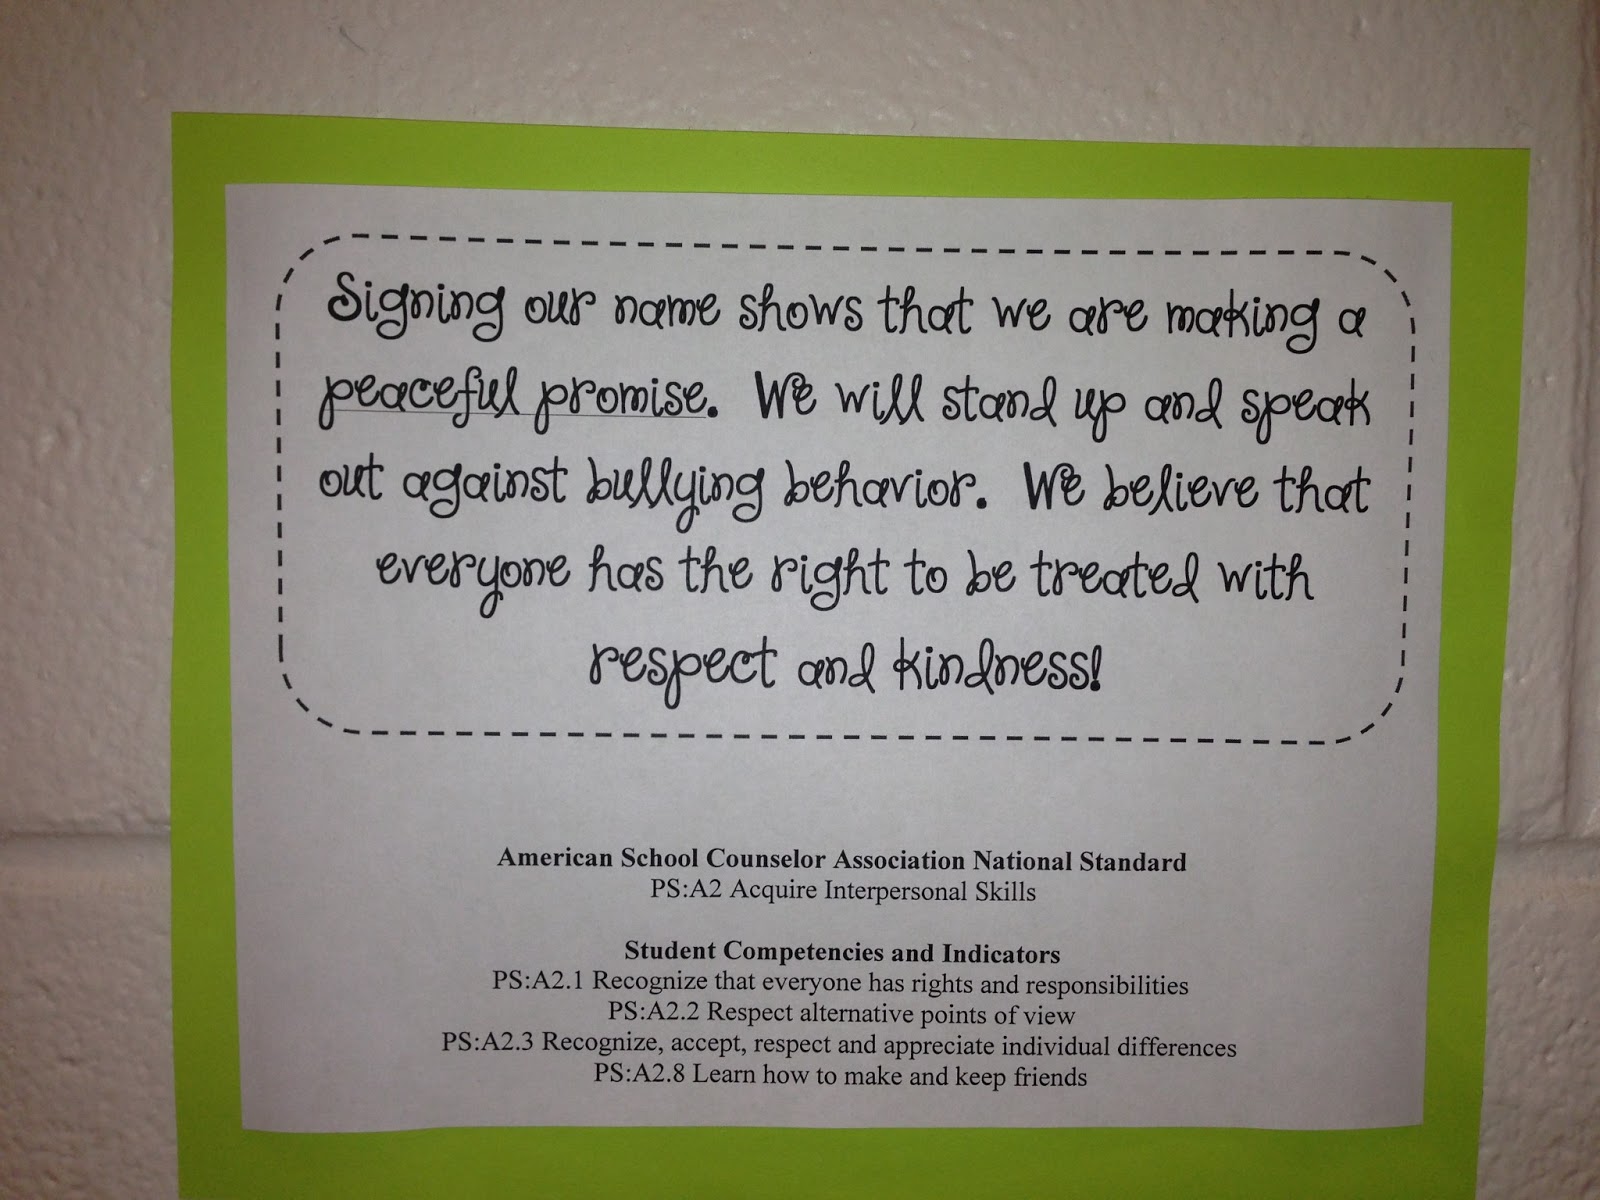 Signing our name shows that we are making a
peaceful promise. We will stand up and speak
out against bullying behavior. We believe that
everyone has the right to be treated with
respect and kindness!
American School Counselor Association National Standard
PS:A2 Acquire Interpersonal Skills
Student Competencies and Indicators
PS:A2.1 Recognize that everyone has rights and responsibilities
PS:A2.2 Respect alternative points of view
PS:A2.3 Recognize, accept, respect and appreciate individual differences
PS:A2.8 Learn how to make and keep friends